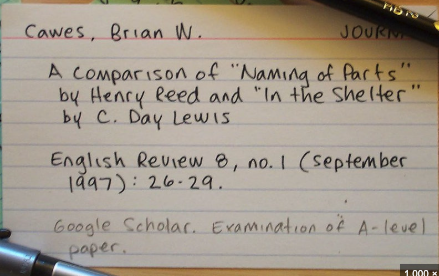 Cawes, Brian W.
A Comparison of "Naming of Parts"
by Henry Reed and "In the Shelter"
by C. Day Lewis
English Review 8, no. 1 (September
1997): 26-29.
Google Scholar. Examination of A-level
paper.
1,000 ×